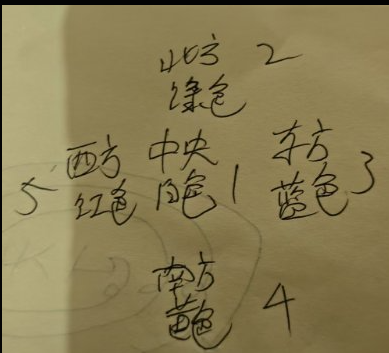 北方 2
绿色
西方 中央 东方
5 红色 白色 1 蓝色 3
南方
黄色 4